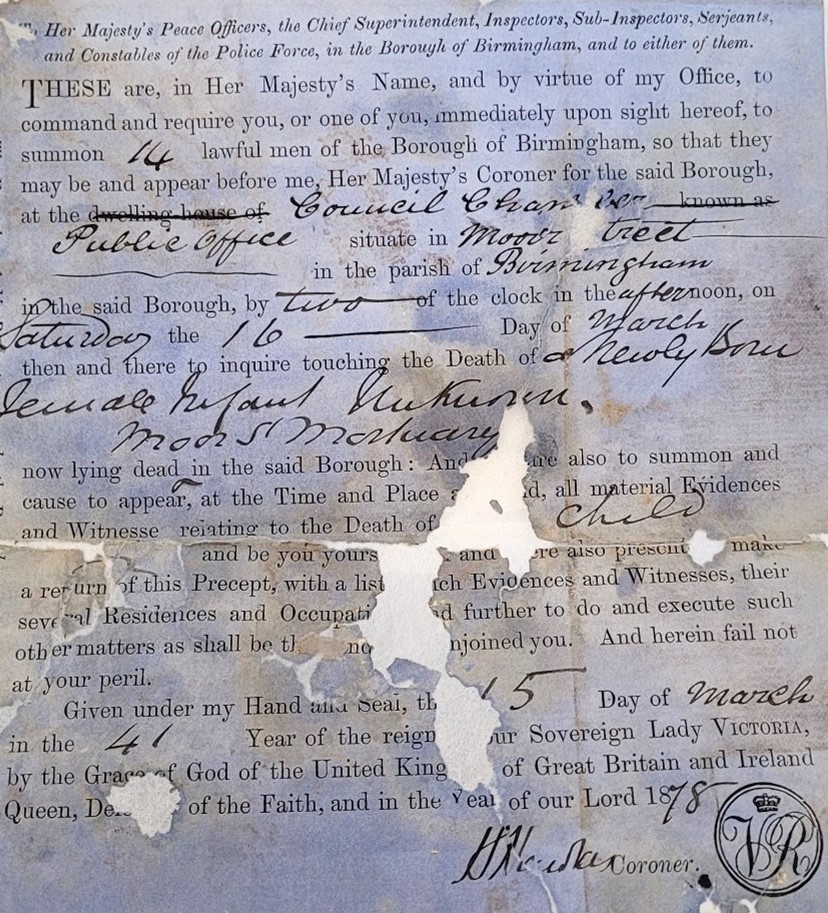 Her Majesty's Peace Officers, the Chief Superintendent, Inspectors, Sub-Inspectors, Serjeants,
and Constables of the Police Force, in the Borough of Birmingham, and to either of them.
THESE are, in Her Majesty's Name, and by virtue of my Office, to
command and require you, or one of you, immediately upon sight hereof, to
summon 14 lawful men of the Borough of Birmingham, so that they
may be and appear before me, Her Majesty's Coroner for the said Borough,
at the dwelling-house of Council Cham ber known as
Public Office situate in Moor treet
in the parish of Birmingham
in the said Borough, by two of the clock in the afternoon, on
Saturday the 16 Day of March
then and there to inquire touching the Death of a Newly Born
Female Infant Unknown.
Moor St Mortuary
now lying dead in the said Borough: And are also to summon and
cause to appear, at the Time and Place d, all material Evidences
and Witnesse relating to the Death of Child
and be you yours and ere also present make
a return of this Precept, with a list ch Evidences and Witnesses, their
several Residences and Occupati d further to do and execute such
other matters as shall be th no njoined you. And herein fail not
at your peril.
Given under my Hand and Seal, th 15 Day of March
in the 41 Year of the reign ur Sovereign Lady VICTORIA,
by the Grace of God of the United King of Great Britain and Ireland
Queen, De of the Faith, and in the Year of our Lord 1878
Coroner.
VR